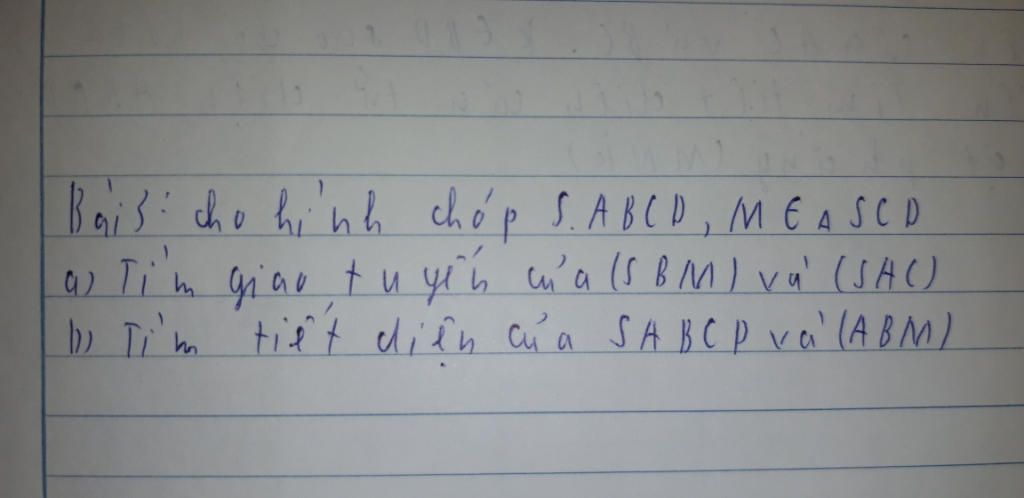 Bài 3: cho hình chóp S.ABCD, M ∈ Δ SCD
a) Tìm giao tuyến của (SBM) và (SAC)
b) Tìm tiết diện của SABCD và (ABM)